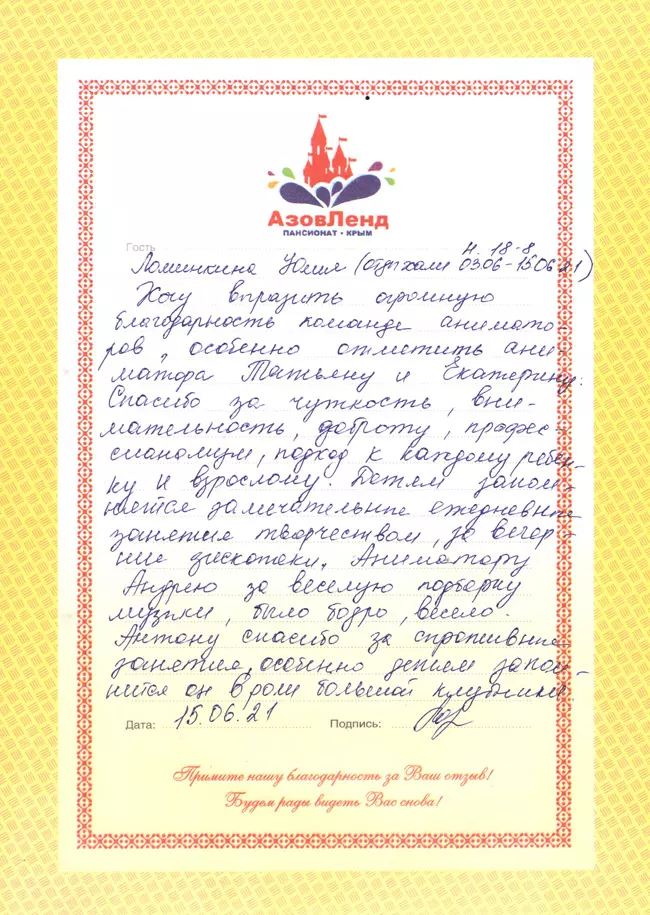 АзовЛенд
ПАНСИОНАТ • КРЫМ
Гость
н. 18-8
Ломинкина Юлия (отдыхали 03.06-15.06.21)
Хочу выразить огромную
благодарность команде анимато-
ров, особенно отметить ани-
матора Татьяну и Екатерину.
Спасибо за чуткость, вни-
мательность, доброту, профес-
сионализм, подход к каждому ребен-
ку и взрослому. Детям запом-
нются замечательные ежедневные
занятия творчеством, за вечер-
ние дискотеки. Аниматору
Андрею за веселую подборку
музыки, было бодро, весело.
Антону спасибо за спортивные
занятия, особенно детям запом-
нится он в роли большой клубники.
Дата: 15.06.21 Подпись:
Примите нашу благодарность за Ваш отзыв!
Будем рады видеть Вас снова!